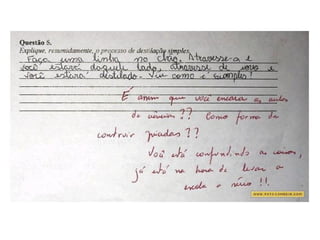 Questão 5.
Explique, resumidamente, o processo de destilação simples.
Faça uma linha no chão. Atravesse-a e
você estará daquele lado, atravesse de novo e
você estará destilado. Viu como é simples?
É assim que você encara as aulas
de ciências?? Como forma de
construir piadas??
Você está confundindo as coisas,
já está na hora de levar a
escola a sério!!